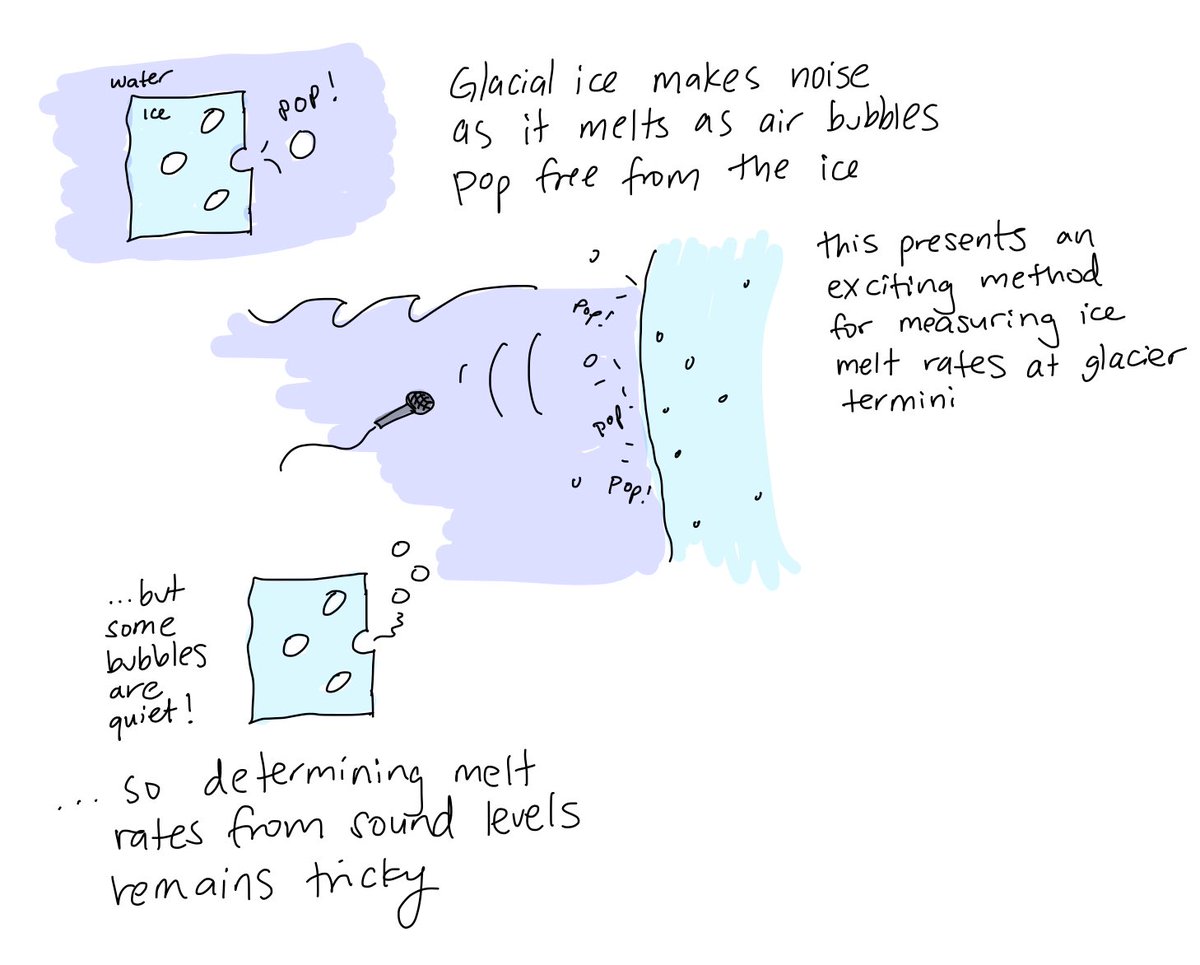 water
ice
pop!
Glacial ice makes noise
as it melts as air bubbles
pop free from the ice
this presents an
exciting method
for measuring ice
melt rates at glacier
termini
Pop!
pop
Pop!
...but
some
bubbles
are
quiet!
... so determining melt
rates from sound levels
remains tricky